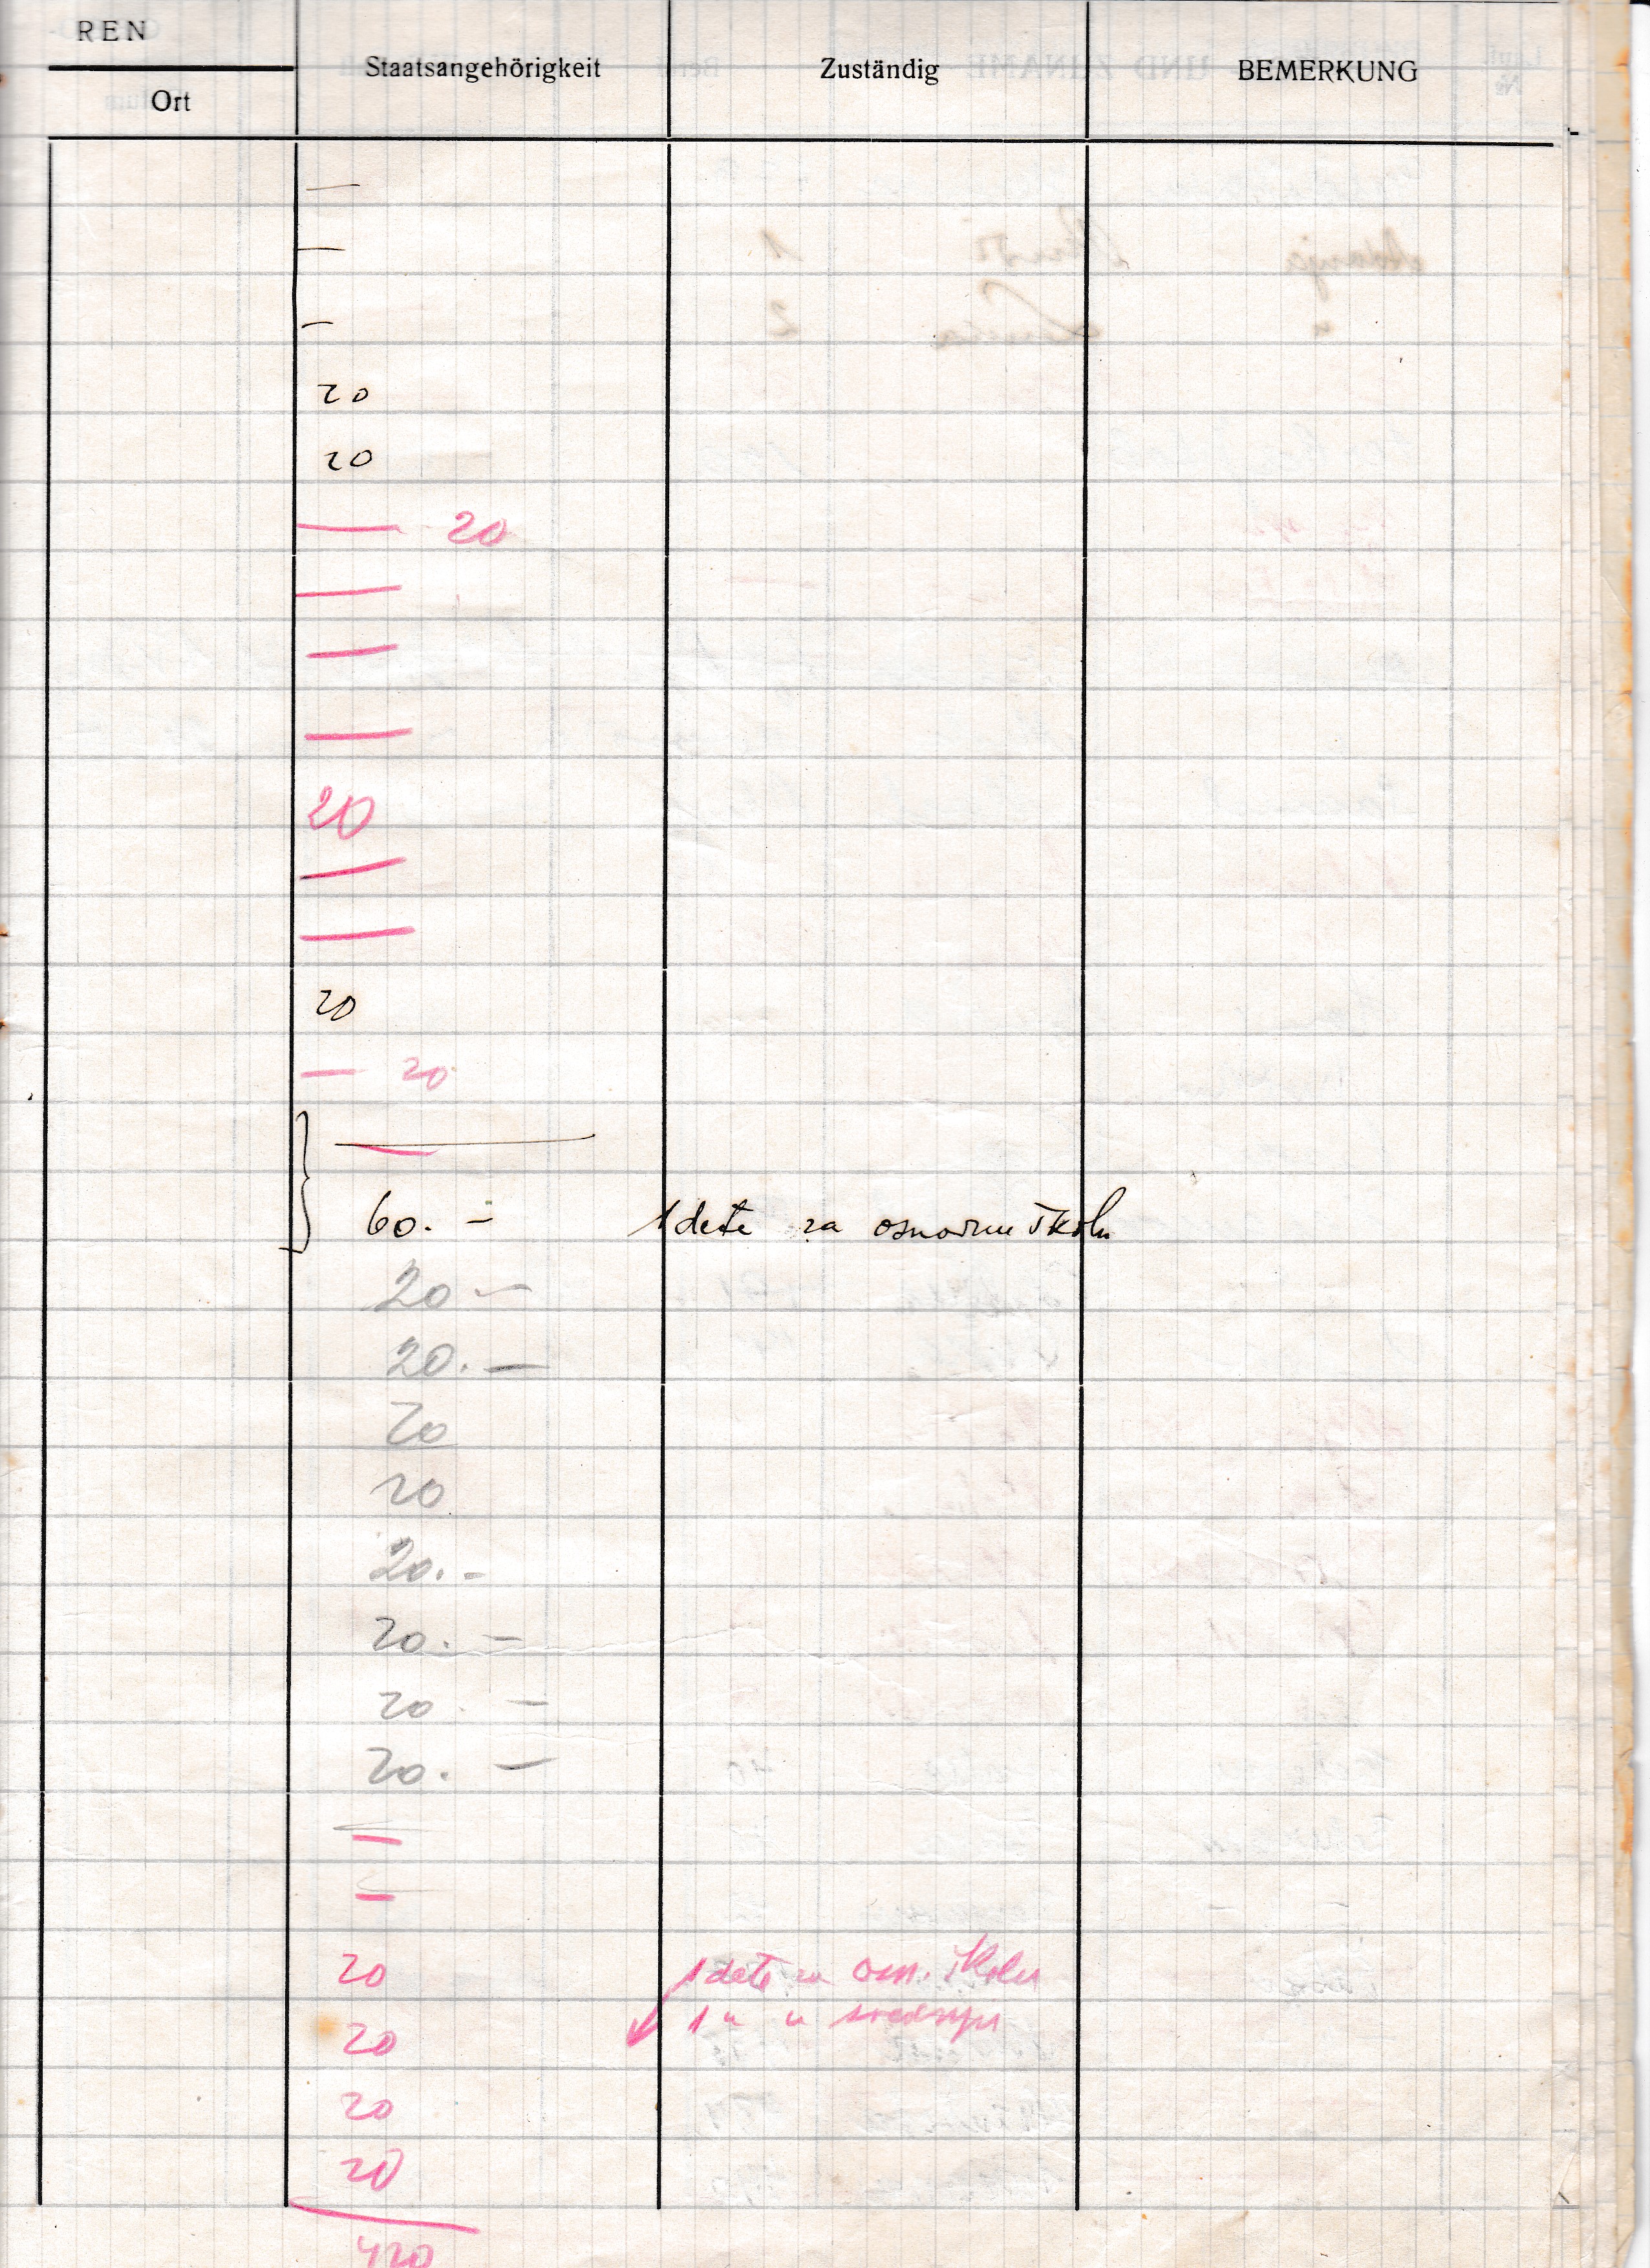 REN
Ort Staatsangehörigkeit Zuständig BEMERKUNG
—
—
—
20
20
— 20
—
—
—
20
—
—
20
— 20
—
60.- 1 dete za osnovnu školu
20 -
20.-
20
20
20.-
20.-
20.-
20.-
—
—
20 1 dete za osn. školu
20 1 " " srednju
20
20
420